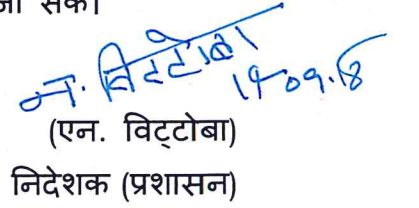 जा सके।
न. विटटोबा
19.09.18
(एन. विट्टोबा)
निदेशक (प्रशासन)